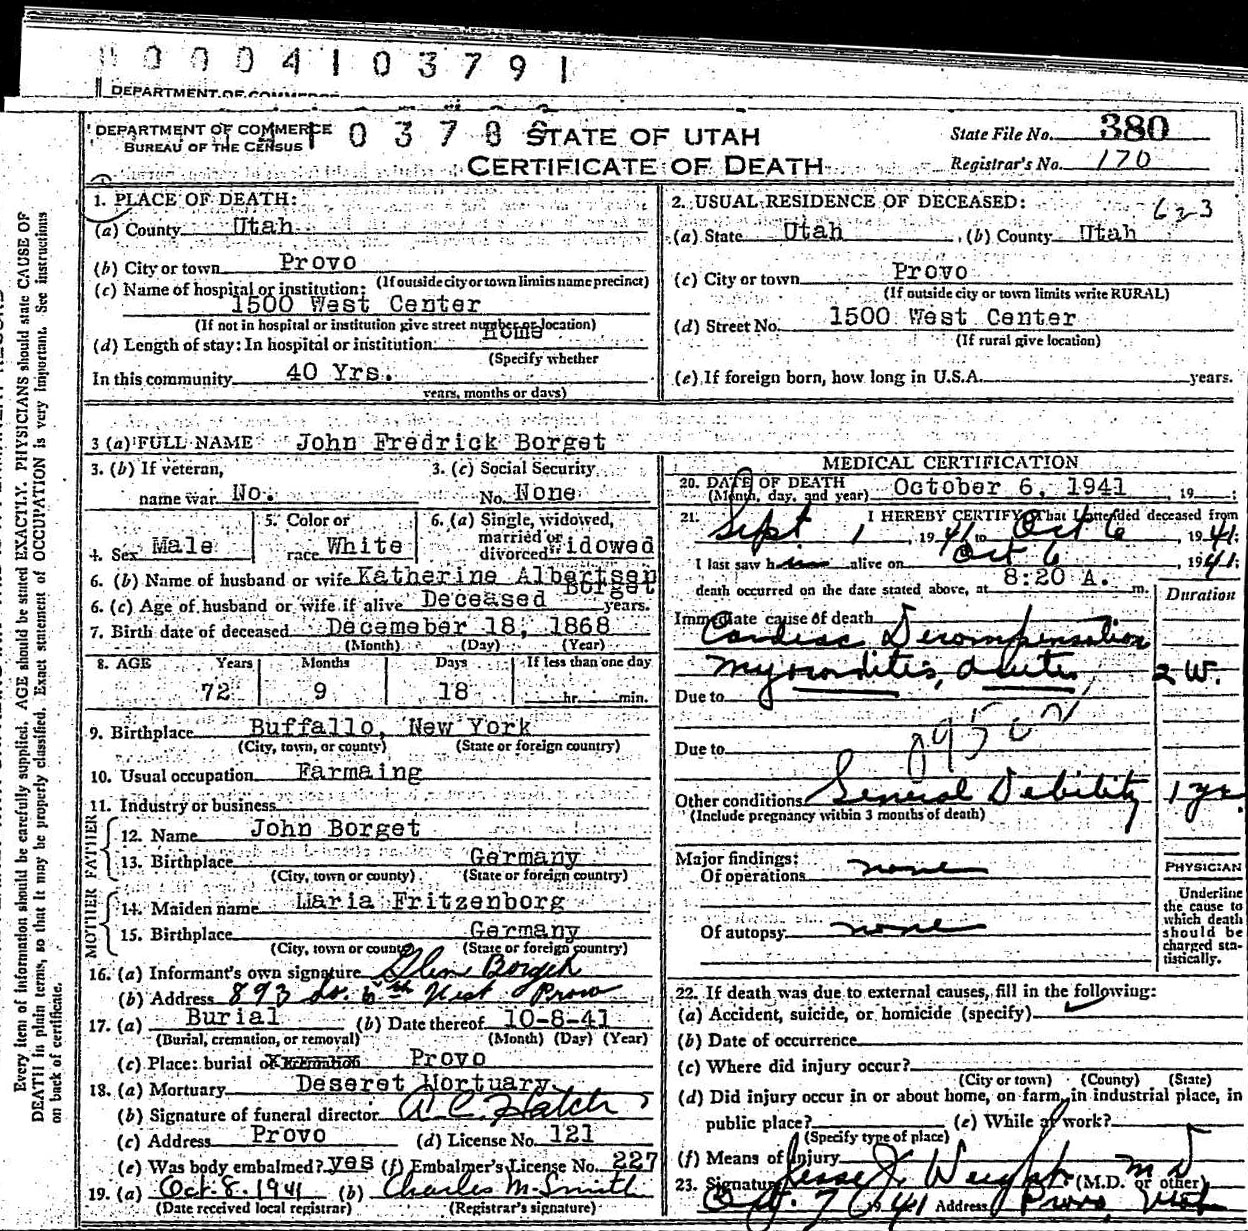 0004103791
DEPARTMENT OF COMMERCE
DEPARTMENT OF COMMERCE
BUREAU OF THE CENSUS
STATE OF UTAH
CERTIFICATE OF DEATH
State File No. 380
Registrar's No. 170
Every item of information should be carefully supplied. AGE should be stated EXACTLY. PHYSICIANS should state CAUSE OF
DEATH in plain terms, so that it may be properly classified. Exact statement of OCCUPATION is very important. See instructions
on back of certificate.
1. PLACE OF DEATH:
(a) County Utah
(b) City or town Provo
(If outside city or town limits name precinct)
(c) Name of hospital or institution:
1500 West Center
(If not in hospital or institution give street number or location)
(d) Length of stay: In hospital or institution Home
(Specify whether
In this community 40 Yrs.
years, months or days)
2. USUAL RESIDENCE OF DECEASED: 623
(a) State Utah, (b) County Utah
(c) City or town Provo
(If outside city or town limits write RURAL)
(d) Street No. 1500 West Center
(If rural give location)
(e) If foreign born, how long in U.S.A. years.
3 (a) FULL NAME John Fredrick Borget
3. (b) If veteran,
name war No.
3. (c) Social Security
No. None
4. Sex Male
5. Color or
race White
6. (a) Single, widowed,
married or
divorced Widowed
6. (b) Name of husband or wife Katherine Albertsen
Borget
6. (c) Age of husband or wife if alive Deceased years.
7. Birth date of deceased Decemeber 18, 1868
(Month) (Day) (Year)
8. AGE Years Months Days If less than one day
72 9 18 hr. min.
9. Birthplace Buffallo, New York
(City, town, or county) (State or foreign country)
10. Usual occupation Farmaing
11. Industry or business
FATHER
12. Name John Borget
13. Birthplace Germany
(City, town or county) (State or foreign country)
MOTHER
14. Maiden name Maria Fritzenborg
15. Birthplace Germany
(City, town or county) (State or foreign country)
16. (a) Informant's own signature Borget
(b) Address 893 So. 6th West Provo
17. (a) Burial (b) Date thereof 10-8-41
(Burial, cremation, or removal) (Month) (Day) (Year)
(c) Place: burial or Provo
18. (a) Mortuary Deseret Mortuary
(b) Signature of funeral director A. C. Hatch
(c) Address Provo (d) License No. 121
(e) Was body embalmed? yes (f) Embalmer's License No. 227
19. (a) Oct. 8. 1941 (b) Charles M. Smith
(Date received local registrar) (Registrar's signature)
MEDICAL CERTIFICATION
20. DATE OF DEATH
(Month, day, and year) October 6, 1941, 19 ;
21. I HEREBY CERTIFY, That I attended deceased from
Sept 1, 1941 to Oct 6, 1941;
I last saw him alive on Oct 6, 1941;
death occurred on the date stated above, at 8:20 A. m.
Duration
Immediate cause of death
Cardiac Decompensation
Myocarditis, acute, 2 W.
Due to
Due to
Other conditions General Debility 1 yr.
(Include pregnancy within 3 months of death)
Major findings:
Of operations none
Of autopsy none
PHYSICIAN
Underline
the cause to
which death
should be
charged sta-
tistically.
22. If death was due to external causes, fill in the following:
(a) Accident, suicide, or homicide (specify)
(b) Date of occurrence
(c) Where did injury occur?
(City or town) (County) (State)
(d) Did injury occur in or about home, on farm, in industrial place, in
public place? (e) While at work?
(Specify type of place)
(f) Means of injury
23. Signature Jesse J. Weight M D (M.D. or other)
Oct. 7 1941 Address Provo, Utah